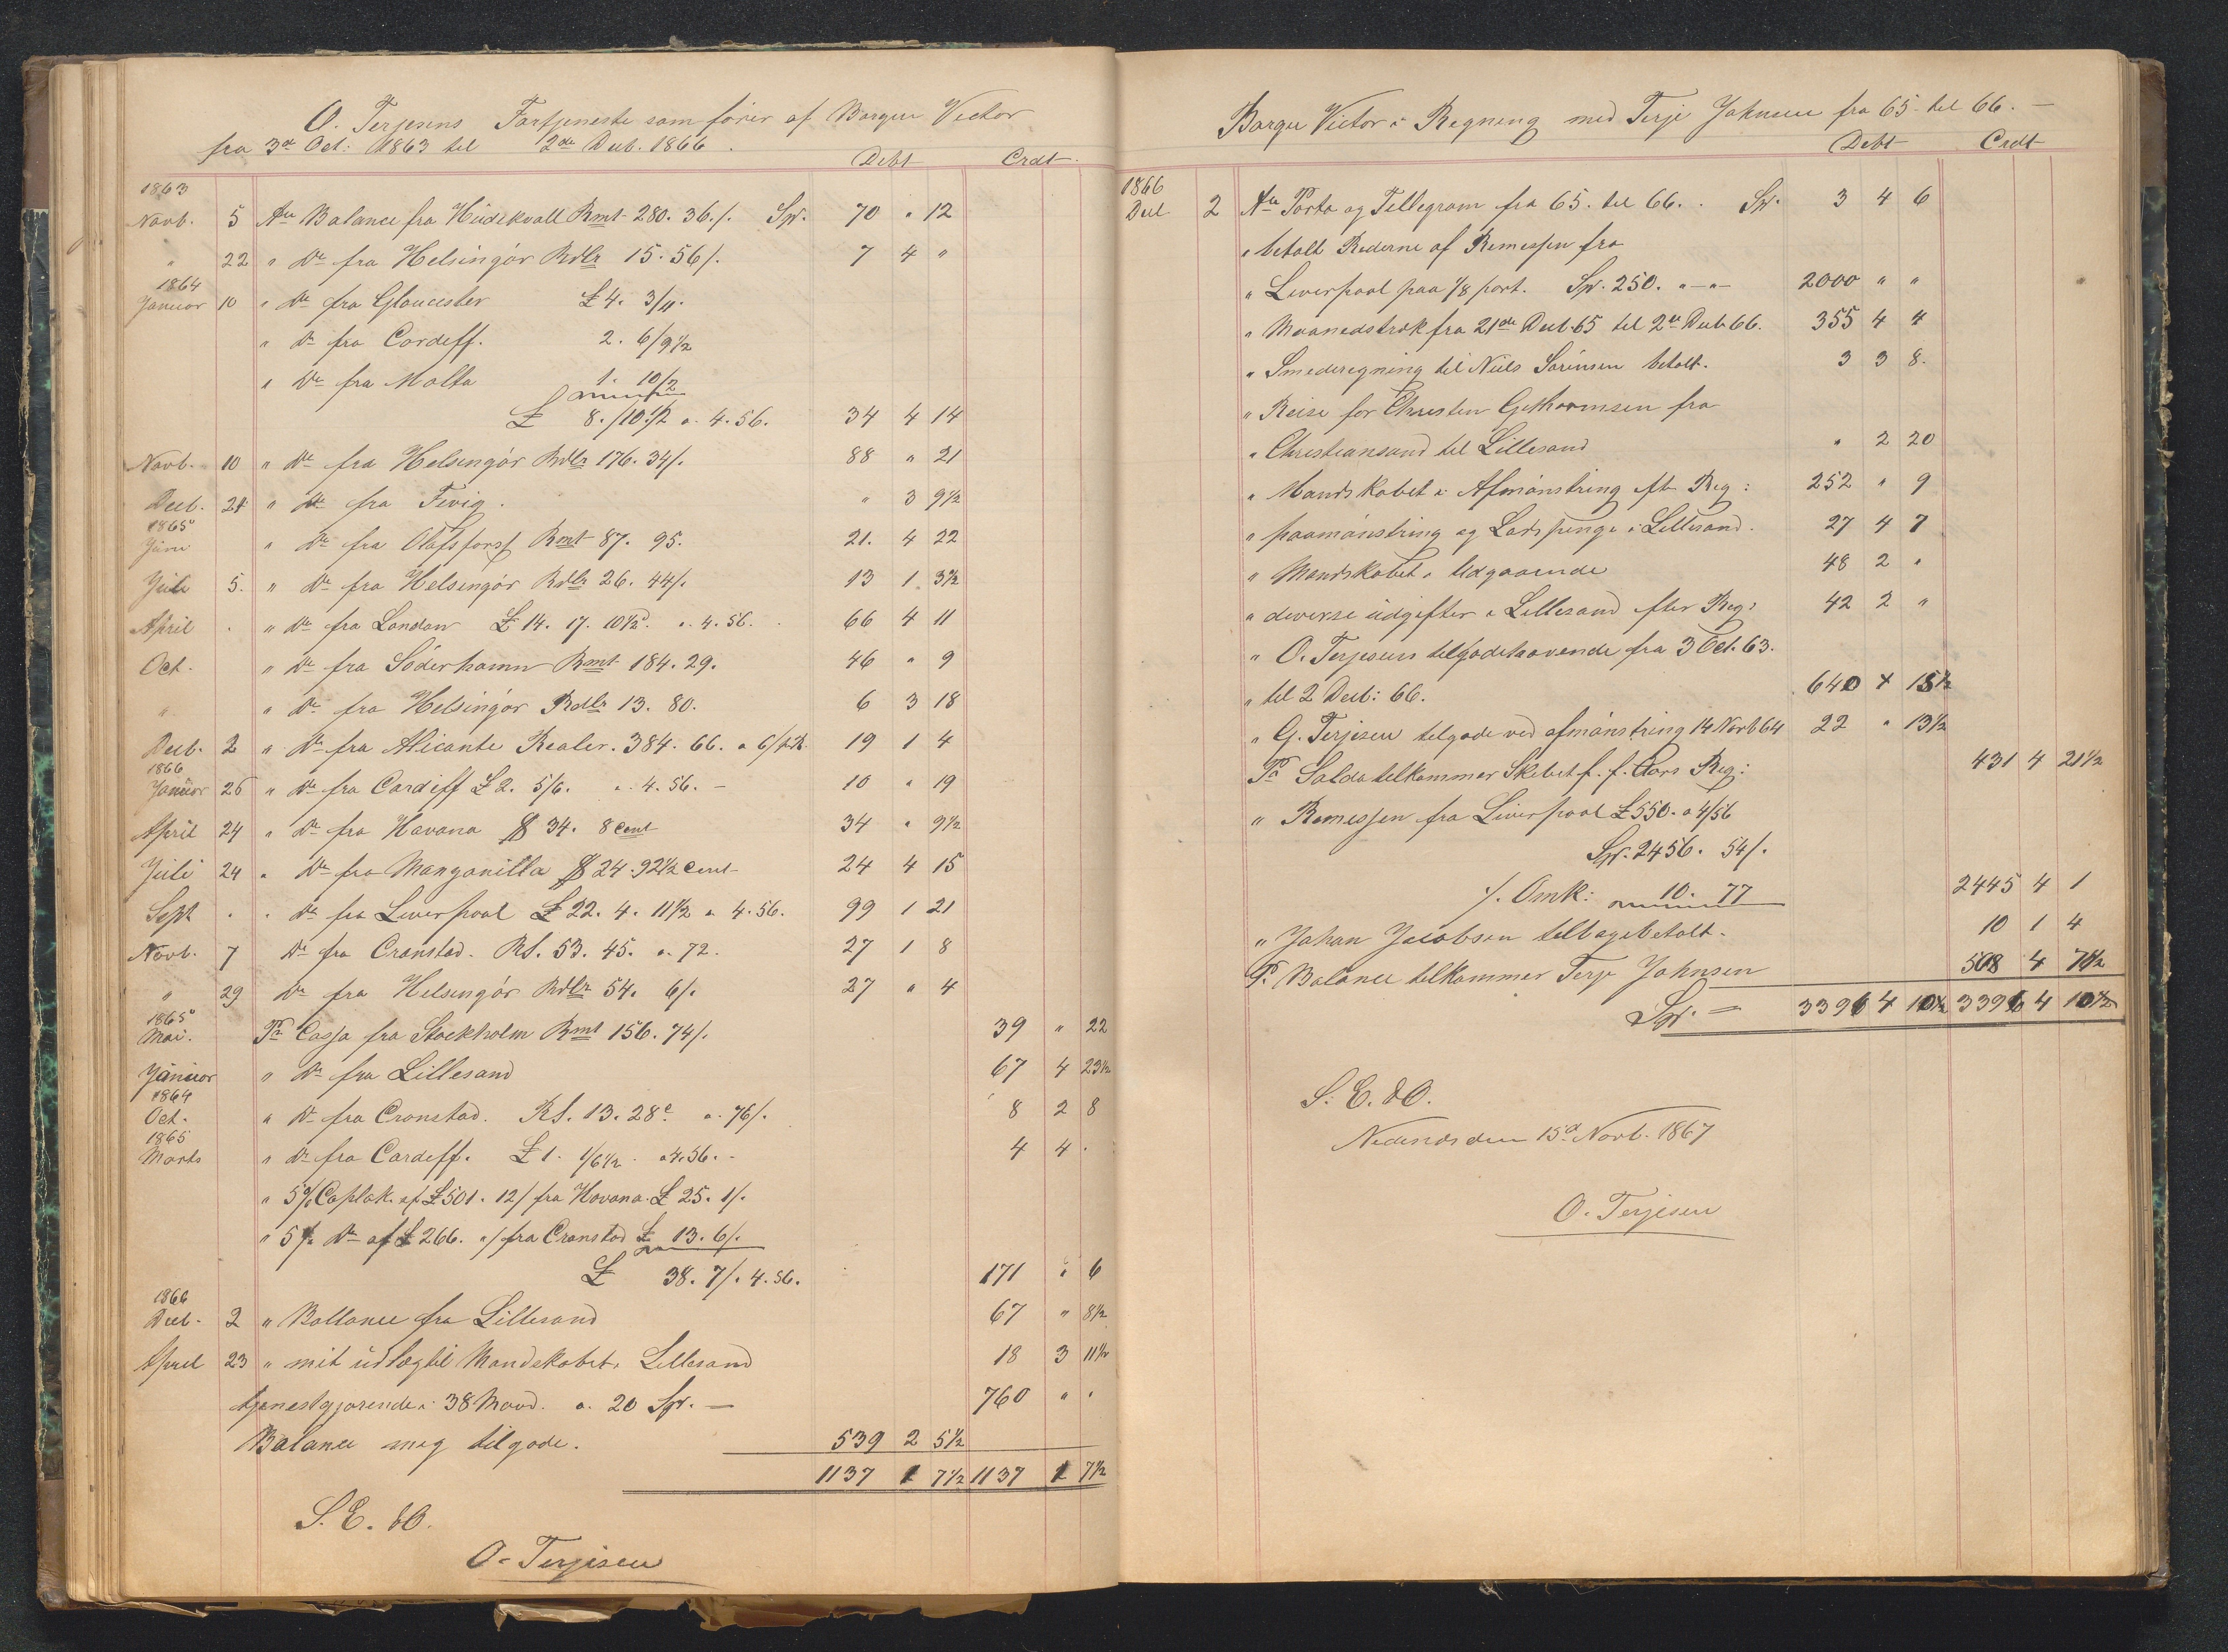 O. Terjesens Fortjeneste som fører af Barque Victor
fra 3de Oct: 1863 til 2den Decb. 1866.
Debt Credt.
1863
Novb. 5 An Balance fra Hudekvall Rmt 280. 36./. Spr. 70 " 12
" 22 " Do fra Helsingör Rdlr 15. 56/. 7 4 "
1864
Januar 10 " Do fra Gloucester £ 4. 3/11.
" Do fra Cardeff. 2. 6/9½
" Do fra Malta 1. 10/2
£ 8./10.½ a. 4.56. 34 4 14
Novb. 10 " Do fra Helsingör Rdlr 176. 34/. 88 " 21
Decb. 21 " Do fra Fevig. " 3 9½
1865
Juni " Do fra Olofsforss Rmt 87. 95. 21. 4 22
Juli 5. " Do fra Helsingör Rdlr 26. 44/. 13 1 3½
April . " Do fra London £ 14. 17. 10½d. a. 4. 56. 66 4 11
Oct. " Do fra Söderhamn Rmt 184. 29. 46 " 9
" " Do fra Helsingör Rdlr 13. 80. 6 3 18
Decb. 2 " Do fra Alicante Realer. 384. 66. a 6/ pr R. 19 1 4
1866
Januar 26 " Do fra Cardiff £ 2. 5/6. a. 4. 56. – 10 " 19
April 24 " Do fra Havana $ 34. 8 Cent 34 " 9½
Juli 24 " Do fra Manganilla $ 24. 92½ Cent 24 4 15
Sept . " Do fra Liverpool £ 22. 4. 11½ a 4. 56. 99 1 21
Novb. 7 Do fra Cronstad. RS. 53. 45. a. 72. 27 1 8
" 29 Do fra Helsingör Rdlr 54. 6/. 27 " 4
1865
Mai. Pr Cassa fra Stockholm Rmt 156. 74/. 39 " 22
Januar " Do fra Lillesand 67 4 23½
1864
Oct. " Do fra Cronstad. RS. 13. 28c a. 76/. 8 2 8
1865
Marts " Do fra Cardeff. £ 1. 1/6½ a 4.56. – 4 4 .
" 5% Caplak. af £ 501. 12/ fra Havana. £ 25. 1/.
" 5% Do af £ 266. "/ fra Cronstad £ 13. 6/.
£ 38. 7/. 4. 56. 171 " 6
1866
Decb. 2 " Ballance fra Lillesand 67 " 8½
April 23 " mit udlæg til Mandskabet i Lillesand 18 3 11½
tjenestgjørende i 38 Maand. a. 20 Spr. – 760 " "
Balance mig tilgode. 539 2 5½
1137 1 7½ 1137 1 7½
S. E. & O.
O. Terjesen
Barque Victor i Regning med Terje Johnsen fra 65 til 66. –
Debt Credt
1866
Decb 2 An Porto og Tellegram fra 65. til 66. . Spr. 3 4 6
" betalt Rederne af Remessen fra
" Liverpool paa 1/8 part. Spr. 250. "–"– 2000 " "
" Maanedstræk fra 21de Decb 65 til 2den Decb 66. 355 4 4
" Smederegning til Niels Sörensen betalt. 3 3 8.
" Reise for Christen Guthormsen fra
" Christiansand til Lillesand " 2 20
" Mandskabet i Afmönstring eft Reg: 252 " 9
" paamönstring og Lods penge i Lillesand. 27 4 7
" Mandskabet i Udgaaende 48 2 "
" diverse udgifter i Lillesand efter Reg: 42 2 "
" O. Terjesens tilgodehavende fra 3 Oct. 63.
" til 2 Decb: 66. 640 4 15½
" G. Terjesen tilgode ved afmönstring 14 Novb 64 22 " 13½
Pr Saldo tilkommer Skibet f. f. Aars Reg: 431 4 21½
" Remessen fra Liverpool £ 550. a 4/56
Spr. 2456. 54/.
./. Omk: 10. 77 2445 4 1
" Johan Jacobsen tilbagebetalt. 10 1 4
Pr. Balance tilkommer Terje Johnsen 508 4 7½
Spr. – 3396 4 10½ 3396 4 10½
S. E. & O.
Nedenæs den 15de Novb. 1867
O. Terjesen